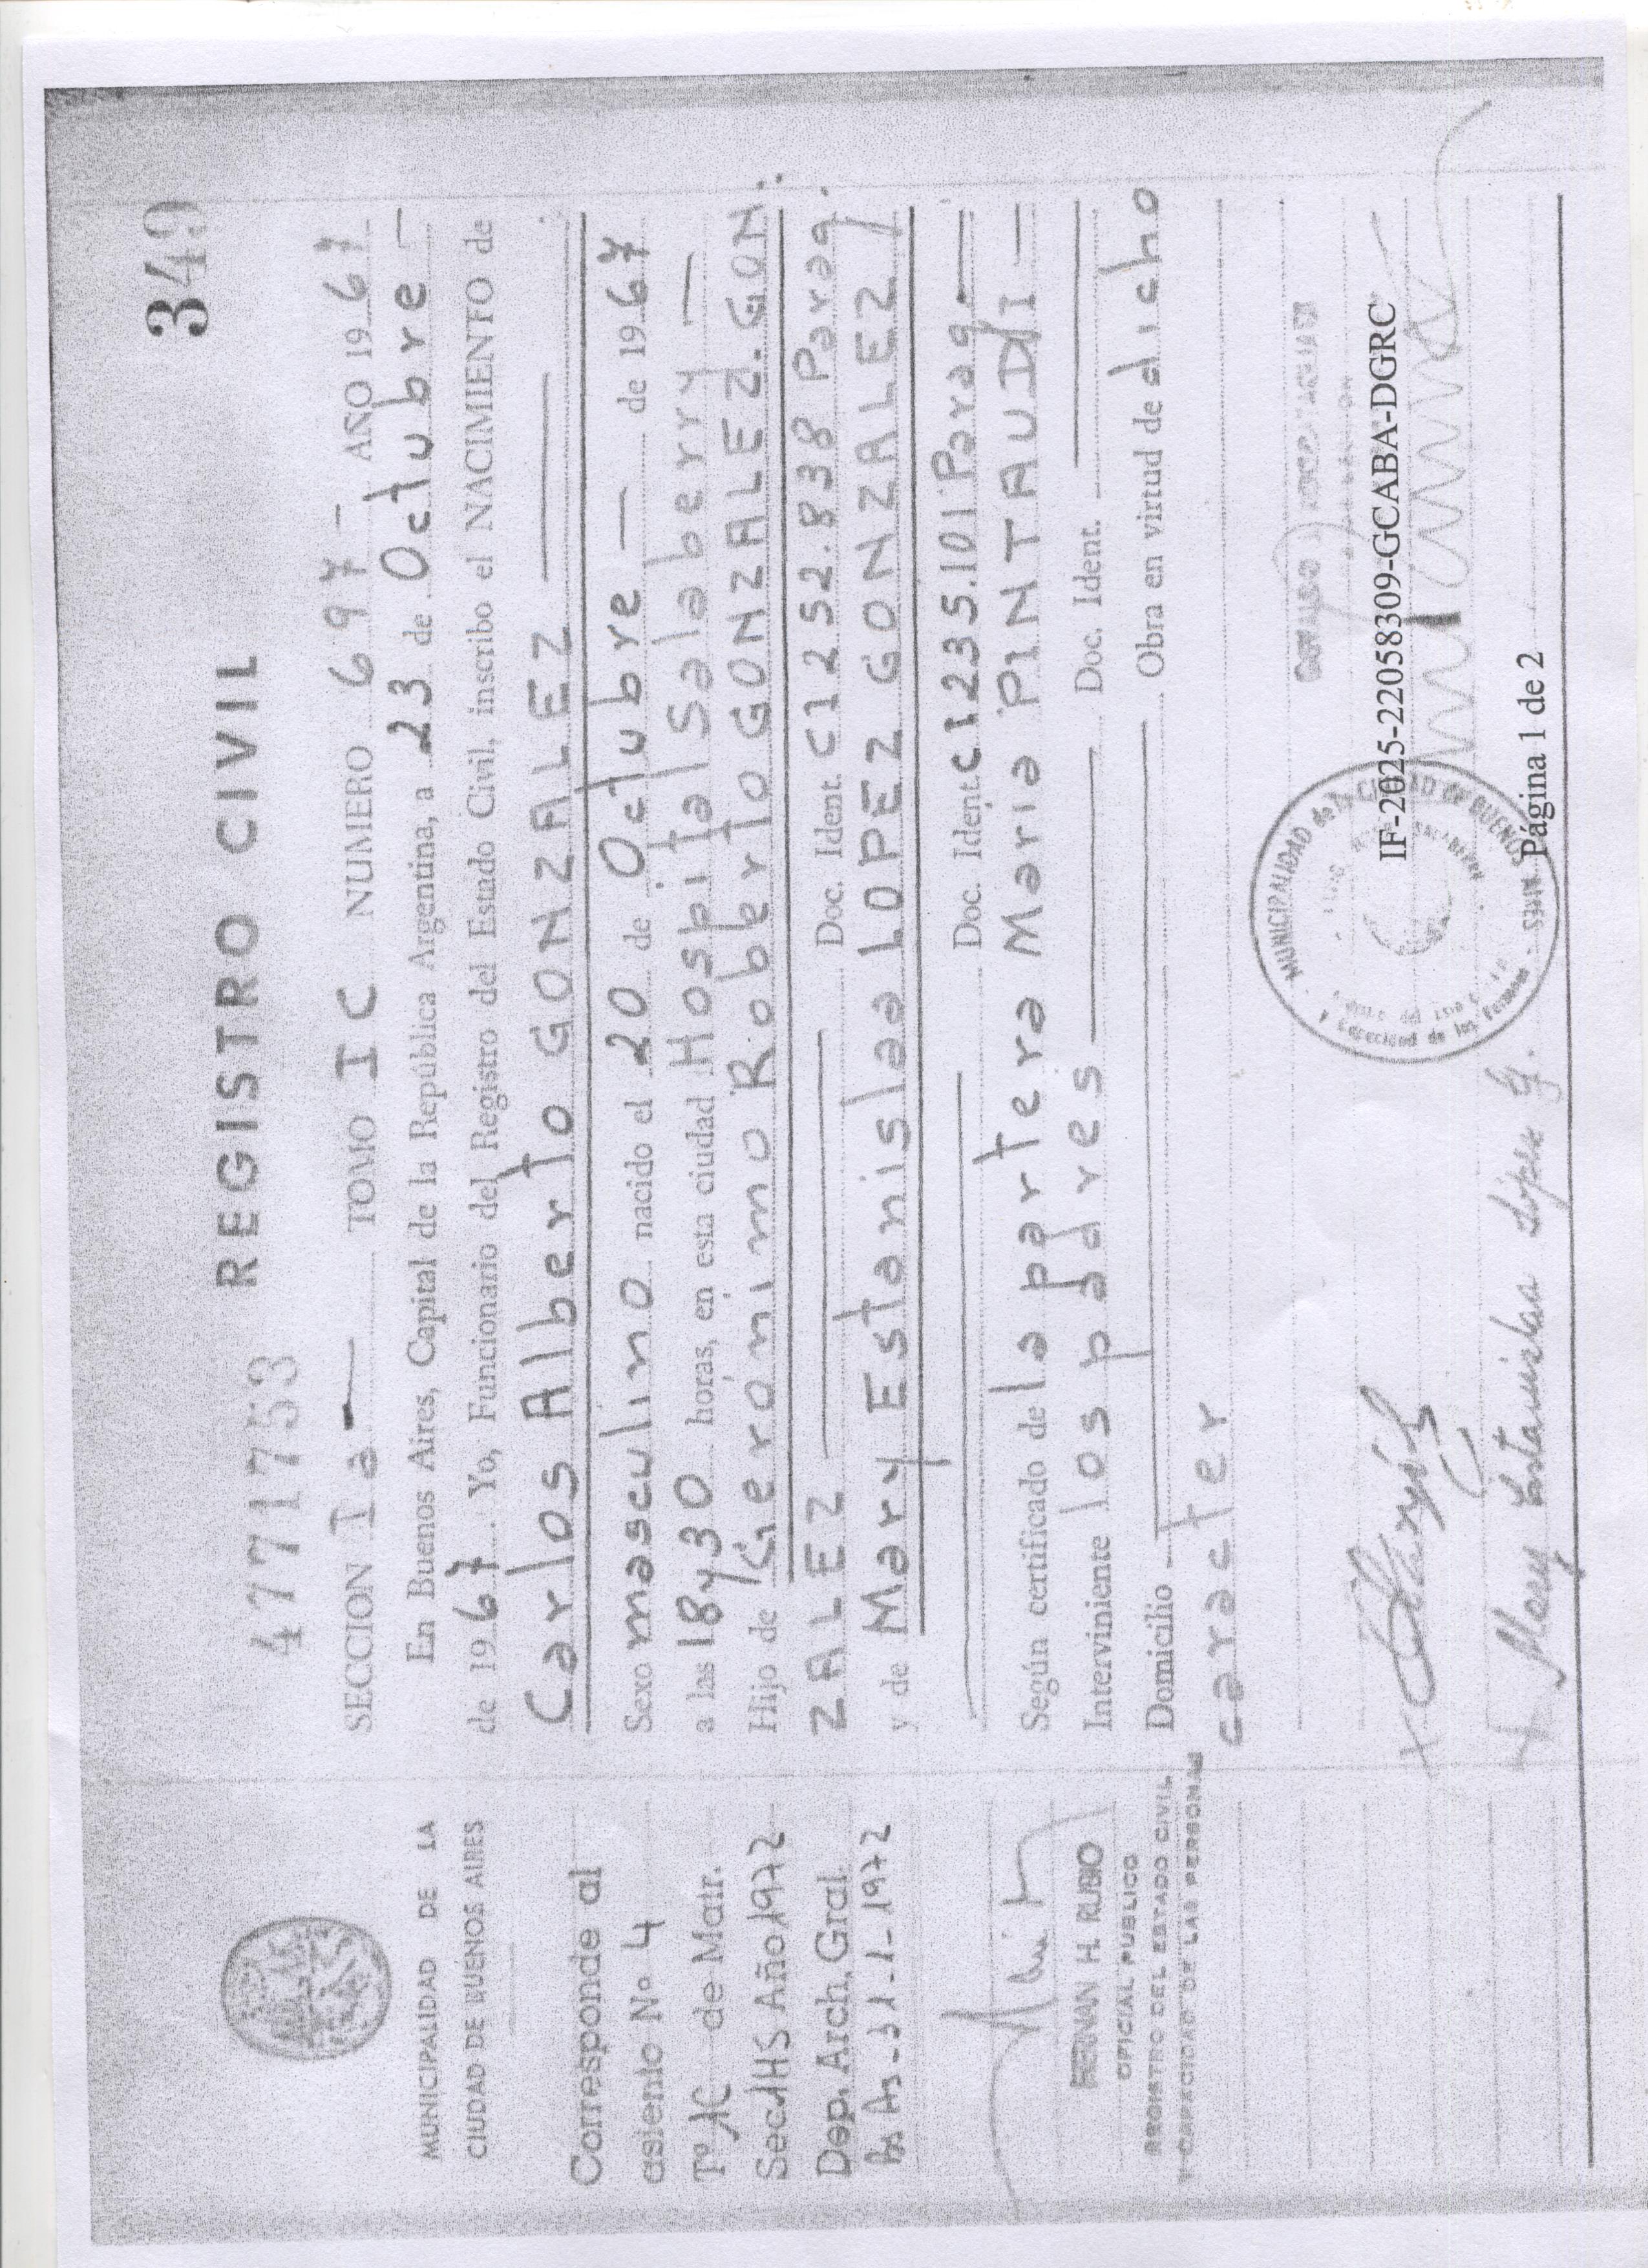 349
4771753 REGISTRO CIVIL
SECCION Ia TOMO I C NUMERO 697 - AÑO 1967
En Buenos Aires, Capital de la República Argentina, a 23 de Octubre -
de 1967. Yo, Funcionario del Registro del Estado Civil, inscribo el NACIMIENTO de
Carlos Alberto GONZALEZ
Sexo masculino nacido el 20 de Octubre — de 1967
a las 18y30 horas, en esta ciudad Hospital Salaberry —
Hijo de Gerónimo Roberto GONZALEZ. GON
ZALEZ — Doc. Ident. C1252.838 Parag.
y de Mary Estanislaa LOPEZ GONZALEZ
Doc. Ident. C1235.101 Parag. —
Según certificado de la partera María PINTAUDI —
Interviniente los padres — Doc. Ident. —
Domicilio — Obra en virtud de dicho
caracter
MUNICIPALIDAD DE LA
CIUDAD DE BUENOS AIRES
Corresponde al
asiento Nº 4
Tº 1C de Matr.
Sec. Año 1972
Dep. Arch. Gral.
Bs As - 31-1-1972
HERNAN H. RUBIO
OFICIAL PUBLICO
REGISTRO DEL ESTADO CIVIL
Y CAPACIDAD DE LAS PERSONAS
MUNICIPALIDAD de la CIUDAD DE BUENOS AIRES
Capacidad de las Personas
IF-2025-22058309-GCABA-DGRC
Página 1 de 2
Mary Estanislaa López G.